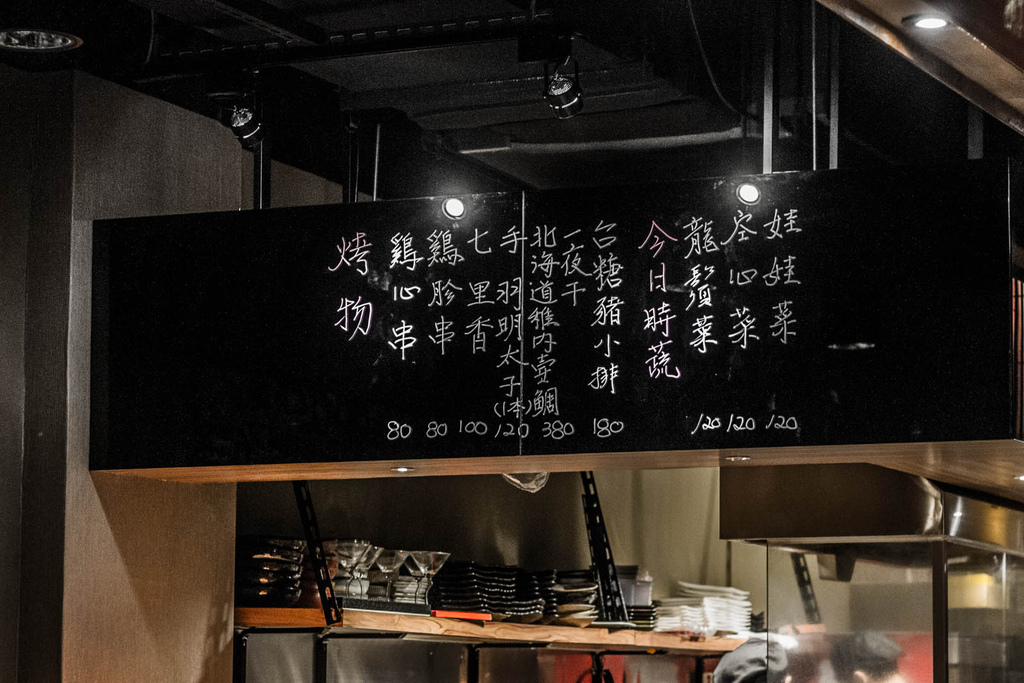 娃娃菜 120
空心菜 120
龍鬚菜 120
今日時蔬
台糖豬小排 180
一夜干
北海道稚内壺鯛 380
手羽明太子(1本) 120
七里香 100
鷄胗串 80
鷄心串 80
烤物